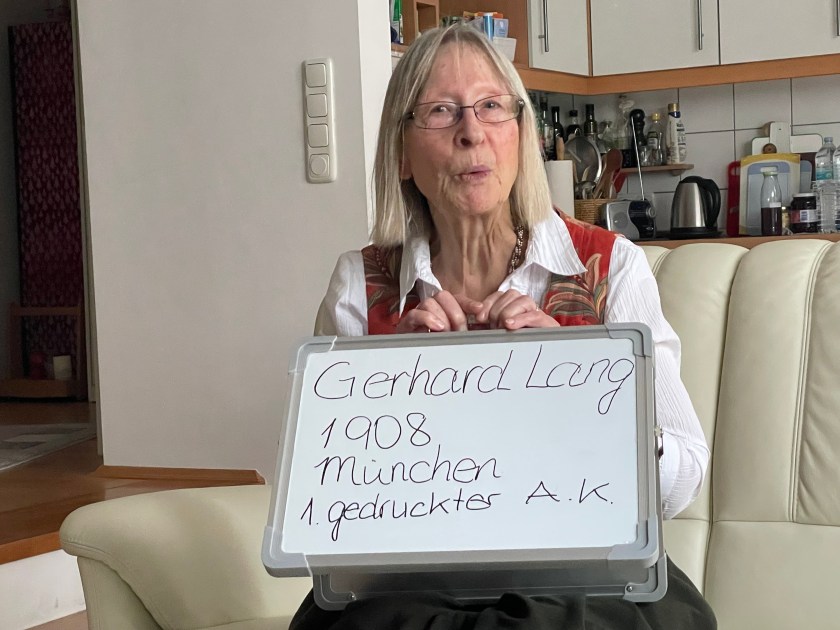 Gerhard Lang
1908
München
1. gedruckter A.K.